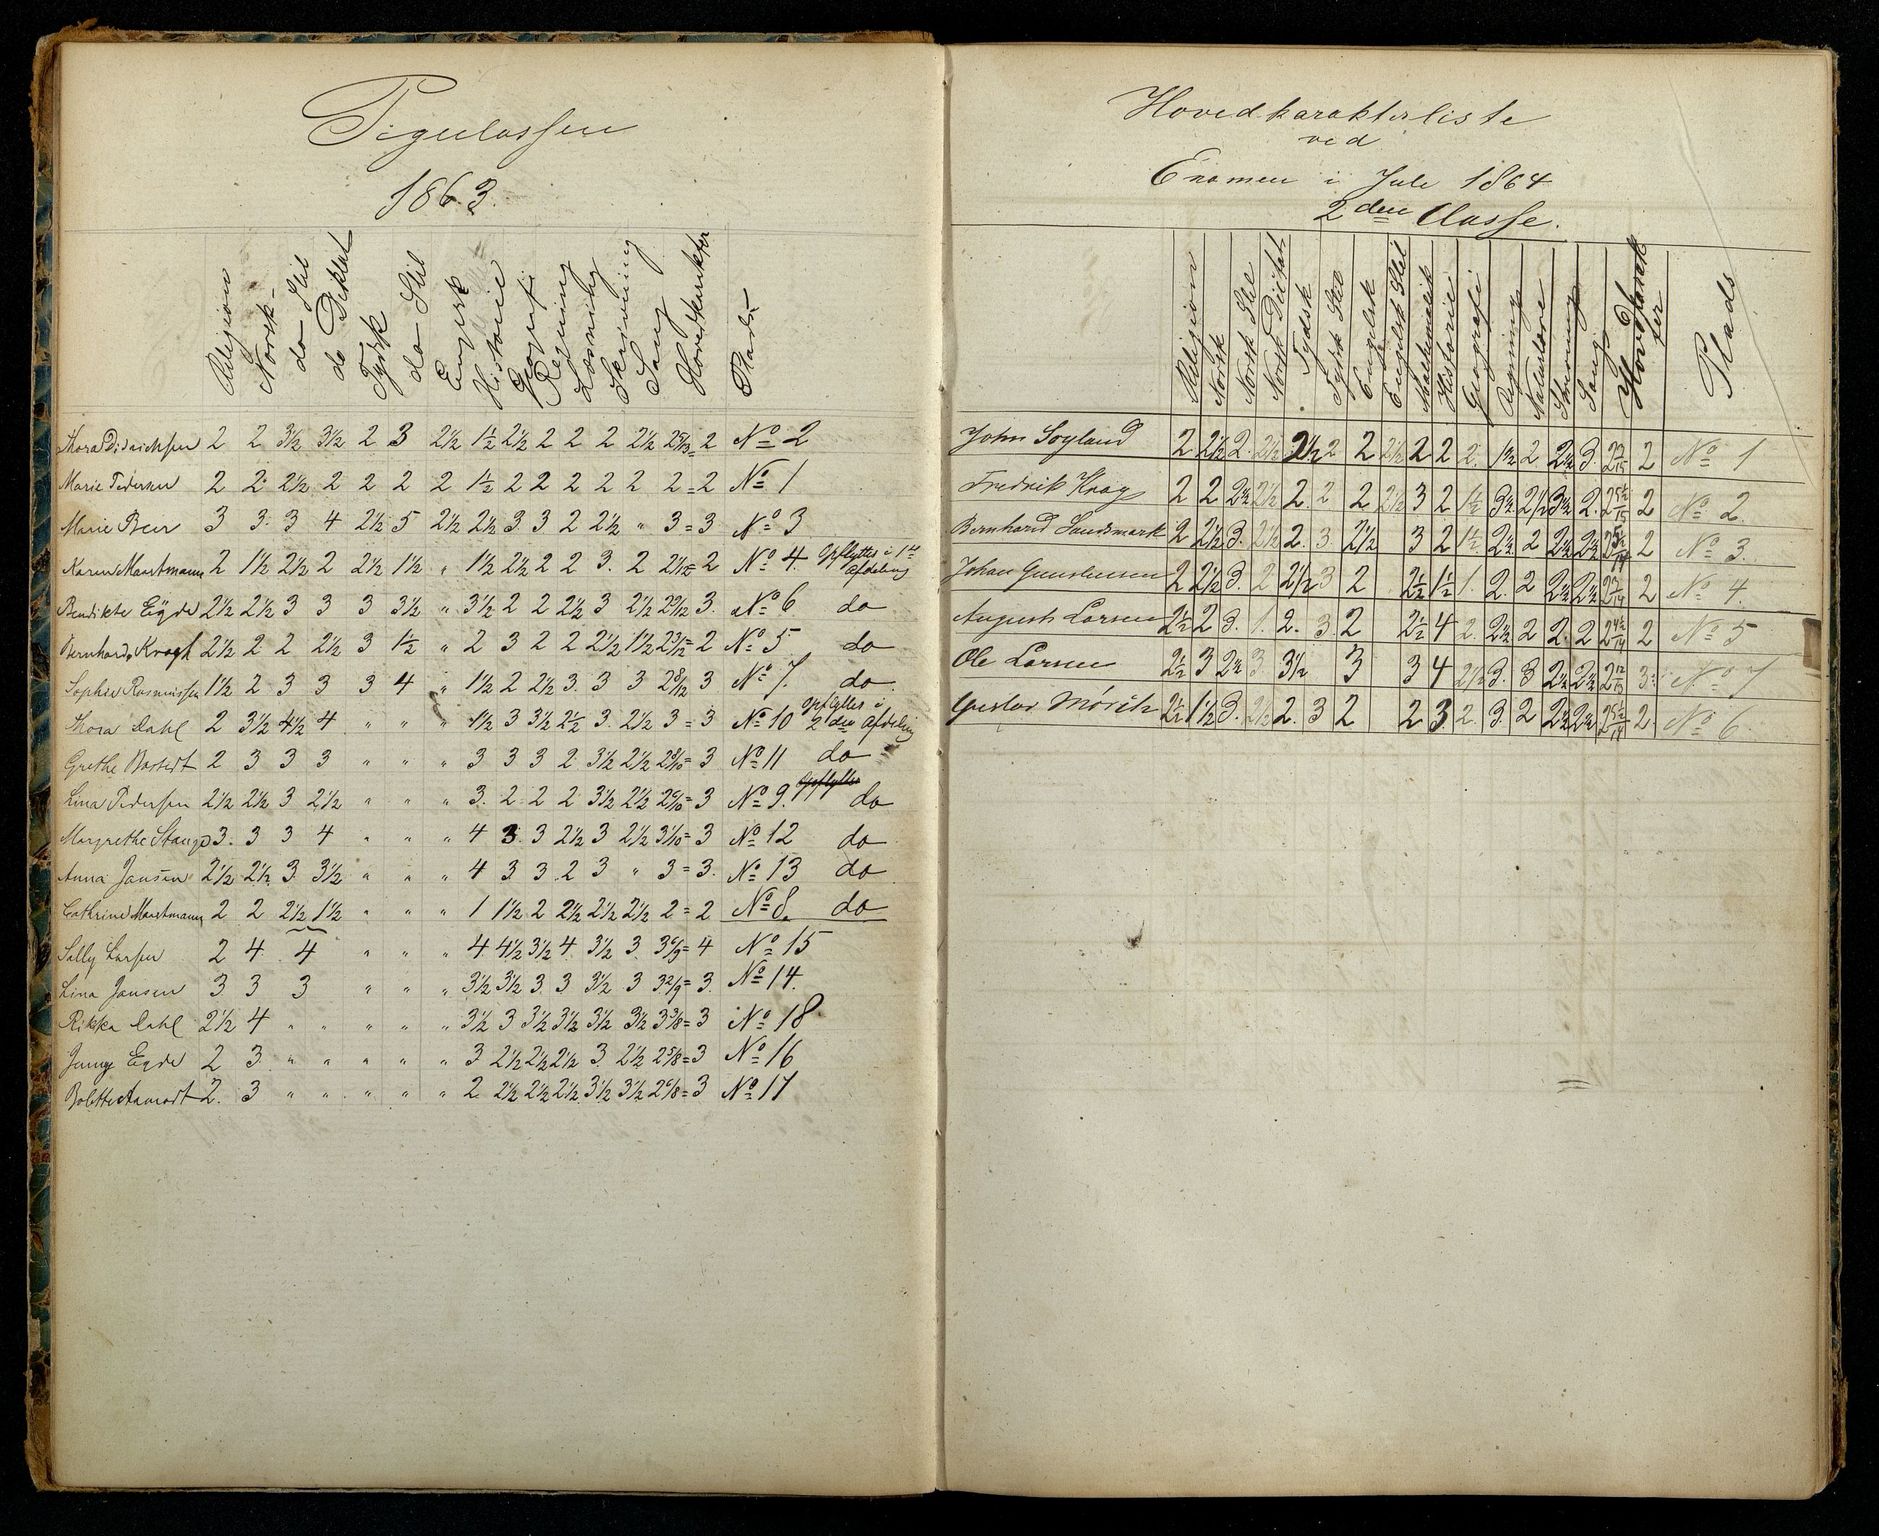 Pigeclassen
1863.
Religion Norsk do Stil do Diktat Tydsk do Stil Engelsk Historie Geografi Regning Læsning Skrivning Sang Hovedkarakter Plads
Thora Didrichsen 2 2 3½ 3½ 2 3 2½ 1½ 2½ 2 2 2 2½ = 2 No 2
Marie Pedersen 2 2 2½ 2 2 2 2 1½ 2 2 2 2 2 2 = 2 No 1
Marie Beer 3 3 3 4 2½ 5 2½ 2½ 3 3 2 2½ " 3 = 3 No 3
Karen Maastmann 2 1½ 2½ 2 2½ 1½ " 1½ 2½ 2 2 3 2 2 1/12 = 2 No 4. Opflyttes i 1ste Afdeling
Bendikte Eyde 2½ 2½ 3 3 3 3½ " 3½ 2 2 2½ 3 2½ 3. No 6 do
Bernharda Krogh 2½ 2 2 2½ 3 1½ " 2 3 2 2 2½ 1½ = 2 No 5 do
Sophie Rasmussen 1½ 2 3 3 3 4 " 1½ 2 2½ 3 3 3 2 8/12 3 No 7. do
Thora Dahl 2 3½ 4½ 4 " " " 1½ 3 3½ 2½ 3. 2½ 3 = 3 No 10 Opflyttes i 2den Afdeling
Grethe 2 3 3 3 " " " 3 3 3 2 3½ 2½ 2 8/10 = 3 No 11 do
Lina Pedersen 2½ 2½ 3 2½ " " " 3. 2 2 2 3½ 2½ 2 6/10 = 3 No 9. do
Margrethe Stange 3. 3 3 4 " " " 4 3 3 2½ 3 2½ 3 1/10 = 3 No 12 do
Anna Jansen 2½ 2½ 3 3½ " " " 4 3 3 2 3 " 3 = 3. No 13 do
Cathrine Maastmann 2 2 2½ 1½ " " " 1 1½ 2 2½ 2½ 2½ 2 = 2 No 8. do
Sally Larsen 2 4 4 " " " 4 4½ 3½ 4 3½ 3 3 6/9 = 4 No 15
Lina Jansen 3 3 3 " " " 3½ 3½ 3 3 3½ 3 3 2/9 = 3. No 14.
Rikka Dahl 2½ 4 " " " " " 3½ 3 3½ 3½ 3½ 3½ 3 3/8 = 3 No 18
Jenny Eyde 2 3 " " " " " 3 2½ 2½ 2½ 3 2½ 2 5/8 = 3 No 16
Bolette Aamodt 2. 3 " " " " " 2 2½ 2½ 2½ 3½ 3½ 2 6/8 = 3 No 17
Hovedkarakterliste
ved
Examen i Juli 1864
2den Classe.
Religion Norsk Norsk Stil Norsk Diktat Tydsk Tydsk Stil Engelsk Engelsk Stil Mathematik Historie Geografi Regning Naturlære Skrivning Sang Hovedkarakter Plads
John Soyland 2 2½ 2. 2½ 2½ 2 2 2½ 2 2 2. 1½ 2 2½ 3. 2 7/15 2 No 1
Fredrik Krog 2 2 2½ 2½ 2. 2 2 2½ 3 2 1½ 3½ 2½ 3½ 2. 2 No 2.
Bernhard Sandsmark 2 2½ 3. 2½ 2. 3. 2½ 3 2 1½ 2½ 2 2½ 2½ 2 No 3.
Johan 2 2½ 3. 2 2½ 3 2 2½ 1½ 1. 2. 2 2½ 2½ 2 No 4.
August Larsen 2½ 2 3. 1. 2. 3 2 2½ 4 2. 2½ 2 2. 2 2 No 5
Ole Larsen 2½ 3 2½ 3 3½ 3 3 4 2½ 3. 3 2½ 2½ 2 12/13 3. No 7
Gustav Mörch 2½ 1½ 3. 2½ 2. 3 2 2 3. 2. 3. 2 2½ 2½ 2. No 6.